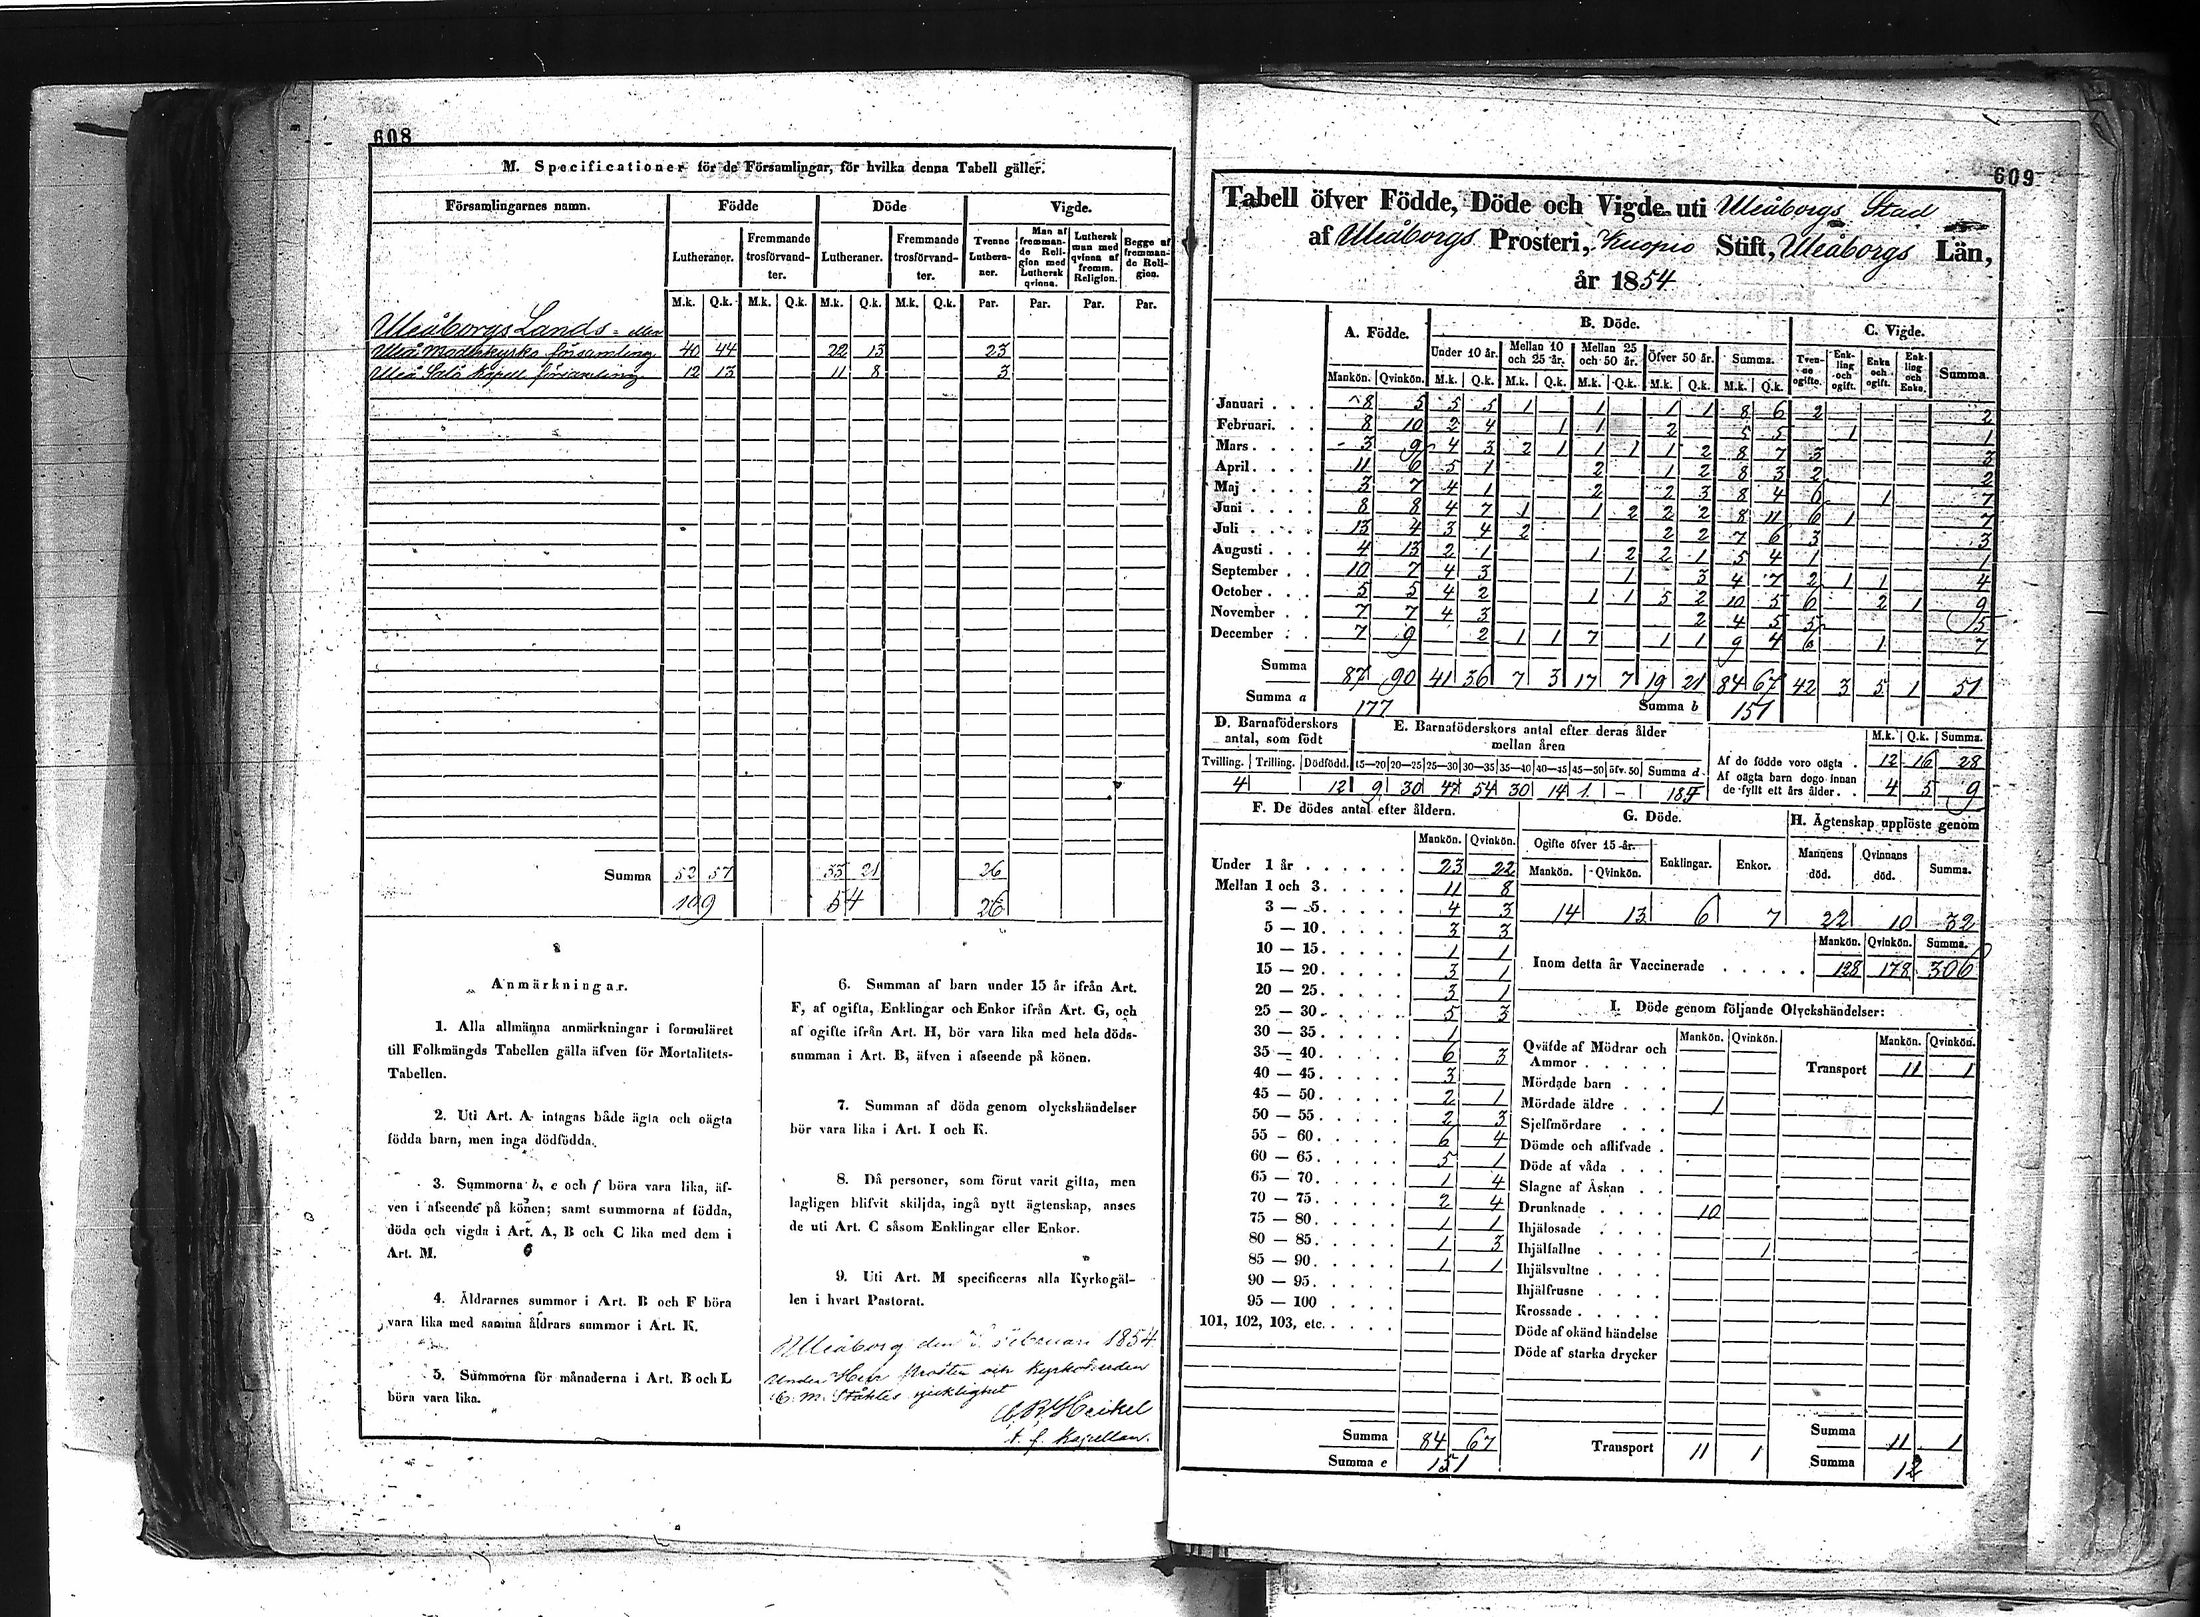 608
M. Specificationer för de Församlingar, för hvilka denna Tabell gäller.
Församlingarnes namn. Födde Döde Vigde.
Lutheraner. Fremmande trosförvandter. Lutheraner. Fremmande trosförvandter. Tvenne Lutheraner. Man af fremmande Religion med Luthersk qvinna. Luthersk man med qvinna af fremm. Religion. Begge af fremmande Religion.
M.k. Q.k. M.k. Q.k. M.k. Q.k. M.k. Q.k. Par. Par. Par. Par.
Uleåborgs Lands = eller
Uleå Moderkyrko församling 40 44 22 13 23
Uleå Salo Kapell församling 12 13 11 8 3
Summa 52 57 33 21 26
109 54 26
Anmärkningar.
1. Alla allmänna anmärkningar i formuläret
till Folkmängds Tabellen gälla äfven för Mortalitets-
Tabellen.
2. Uti Art. A intagas både ägta och oägta
födda barn, men inga dödfödda.
3. Summorna b, c och f böra vara lika, äf-
ven i afseende på könen; samt summorna af födda,
döda och vigda i Art. A, B och C lika med dem i
Art. M.
4. Åldrarnes summor i Art. B och F böra
vara lika med samma åldrars summor i Art. K.
5. Summorna för månaderna i Art. B och L
böra vara lika.
6. Summan af barn under 15 år ifrån Art.
F, af ogifta, Enklingar och Enkor ifrån Art. G, och
af ogifte ifrån Art. H, bör vara lika med hela döds-
summan i Art. B, äfven i afseende på könen.
7. Summan af döda genom olyckshändelser
bör vara lika i Art. I och K.
8. Då personer, som förut varit gifta, men
lagligen blifvit skiljda, ingå nytt ägtenskap, anses
de uti Art. C såsom Enklingar eller Enkor.
9. Uti Art. M specificeras alla Kyrkogäl-
len i hvart Pastorat.
Uleåborg den Februari 1854
Under Herr Prosten och Kyrkoherden
C. M. Ståhles sjuklighet
Heikel
t. f. Kapellan.
609
Tabell öfver Födde, Döde och Vigde uti Uleåborgs Stad
af Uleåborgs Prosteri, Kuopio Stift, Uleåborgs Län,
år 1854
A. Födde. B. Döde. C. Vigde.
Under 10 år. Mellan 10 och 25 år. Mellan 25 och 50 år. Öfver 50 år. Summa. Tvenne ogifte. Enkling och ogift. Enka och ogift. Enkling och Enka. Summa.
Mankön. Qvinkön. M.k. Q.k. M.k. Q.k. M.k. Q.k. M.k. Q.k. M.k. Q.k.
Januari . . . 8 5 5 5 1 1 1 1 8 6 2 2
Februari. . . 8 10 2 4 1 1 2 5 5 1 1
Mars . . . . 3 9 4 3 2 1 1 1 1 2 8 7 3 3
April. . . . 11 6 5 1 2 1 2 8 3 2 2
Maj . . . . 3 7 4 1 2 2 3 8 4 6 1 7
Juni . . . . 8 8 4 7 1 1 2 2 2 8 11 6 1 7
Juli . . . . 13 4 3 4 2 2 2 7 6 3 3
Augusti . . . 4 13 2 1 1 2 2 1 5 4 1 1
September . . 10 7 4 3 1 3 4 7 2 1 1 4
October . . . 5 5 4 2 1 1 5 2 10 5 6 2 1 9
November . . 7 7 4 3 2 4 5 5 5
December . . 7 9 2 1 1 7 1 1 9 4 6 1 7
Summa 87 90 41 36 7 3 17 7 19 21 84 67 42 3 5 1 51
Summa a 177 Summa b 151
D. Barnaföderskors antal, som födt
Tvilling. Trilling. Dödfödd.
4 12
E. Barnaföderskors antal efter deras ålder mellan åren
15—20 20—25 25—30 30—35 35—40 40—45 45—50 öfv. 50 Summa d
9 30 47 54 30 14 1 - 185
M.k. Q.k. Summa.
Af de födde voro oägta . 12 16 28
Af oägta barn dogo innan de fyllt ett års ålder . . 4 5 9
F. De dödes antal efter åldern.
Mankön. Qvinkön.
Under 1 år . . . . . . 23 22
Mellan 1 och 3. . . . . 11 8
3 — 5. . . . . 4 3
5 — 10. . . . . 3 3
10 — 15. . . . . 1 1
15 — 20. . . . . 3 1
20 — 25. . . . . 3 1
25 — 30. . . . . 5 3
30 — 35. . . . . 1
35 — 40. . . . . 6 3
40 — 45. . . . . 3
45 — 50. . . . . 2 1
50 — 55. . . . . 2 3
55 — 60. . . . . 6 4
60 — 65. . . . . 5 1
65 — 70. . . . . 1 4
70 — 75. . . . . 2 4
75 — 80. . . . . 1 1
80 — 85. . . . . 1 3
85 — 90. . . . . 1 1
90 — 95. . . . .
95 — 100 . . . .
101, 102, 103, etc. . . . .
Summa 84 67
Summa c 151
G. Döde.
Ogifte öfver 15 år. Enklingar. Enkor.
Mankön. Qvinkön.
14 13 6 7
H. Ägtenskap upplöste genom
Mannens död. Qvinnans död. Summa.
22 10 32
Mankön. Qvinkön. Summa.
Inom detta år Vaccinerade . . . . . 128 178 306
I. Döde genom följande Olyckshändelser:
Mankön. Qvinkön. Mankön. Qvinkön.
Qväfde af Mödrar och Ammor . . . . . Transport 11 1
Mördade barn . . .
Mördade äldre . . . 1
Sjelfmördare . . .
Dömde och aflifvade .
Döde af våda . . .
Slagne af Åskan . .
Drunknade . . . . 10
Ihjälosade . . . .
Ihjälfallne . . . . 1
Ihjälsvultne . . . .
Ihjälfrusne . . . .
Krossade . . . . .
Döde af okänd händelse
Döde af starka drycker
Transport 11 1
Summa 11 1
Summa 12